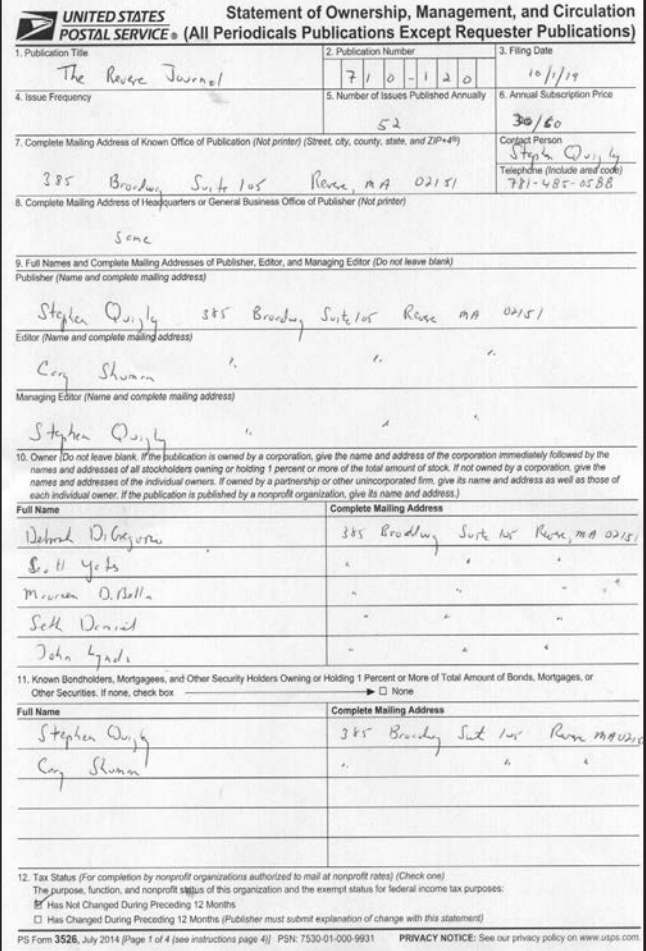 UNITED STATES POSTAL SERVICE®
Statement of Ownership, Management, and Circulation
(All Periodicals Publications Except Requester Publications)
1. Publication Title
The Revere Journal
2. Publication Number
7 1 0 - 1 2 0
3. Filing Date
10/1/19
4. Issue Frequency
5. Number of Issues Published Annually
52
6. Annual Subscription Price
30/60
7. Complete Mailing Address of Known Office of Publication (Not printer) (Street, city, county, state, and ZIP+4®)
385 Broadway Suite 105 Revere, MA 02151
Contact Person
Stephen Quigley
Telephone (Include area code)
781-485-0588
8. Complete Mailing Address of Headquarters or General Business Office of Publisher (Not printer)
Same
9. Full Names and Complete Mailing Addresses of Publisher, Editor, and Managing Editor (Do not leave blank)
Publisher (Name and complete mailing address)
Stephen Quigley 385 Broadway Suite 105 Revere MA 02151
Editor (Name and complete mailing address)
Cary Shuman " " "
Managing Editor (Name and complete mailing address)
Stephen Quigley " " "
10. Owner (Do not leave blank. If the publication is owned by a corporation, give the name and address of the corporation immediately followed by the
names and addresses of all stockholders owning or holding 1 percent or more of the total amount of stock. If not owned by a corporation, give the
names and addresses of the individual owners. If owned by a partnership or other unincorporated firm, give its name and address as well as those of
each individual owner. If the publication is published by a nonprofit organization, give its name and address.)
Full Name
Complete Mailing Address
Deborah DiGregorio 385 Broadway Suite 105 Revere, MA 02151
Scott Yates " " "
Maureen DiBella " " "
Seth Daniel " " "
John Lynds " " "
11. Known Bondholders, Mortgagees, and Other Security Holders Owning or Holding 1 Percent or More of Total Amount of Bonds, Mortgages, or
Other Securities. If none, check box ☐ None
Full Name
Complete Mailing Address
Stephen Quigley 385 Broadway Suit 105 Revere MA 0215
Cary Shuman " " "
12. Tax Status (For completion by nonprofit organizations authorized to mail at nonprofit rates) (Check one)
The purpose, function, and nonprofit status of this organization and the exempt status for federal income tax purposes:
☑ Has Not Changed During Preceding 12 Months
☐ Has Changed During Preceding 12 Months (Publisher must submit explanation of change with this statement)
PS Form 3526, July 2014 [Page 1 of 4 (see instructions page 4)] PSN: 7530-01-000-9931 PRIVACY NOTICE: See our privacy policy on www.usps.com.